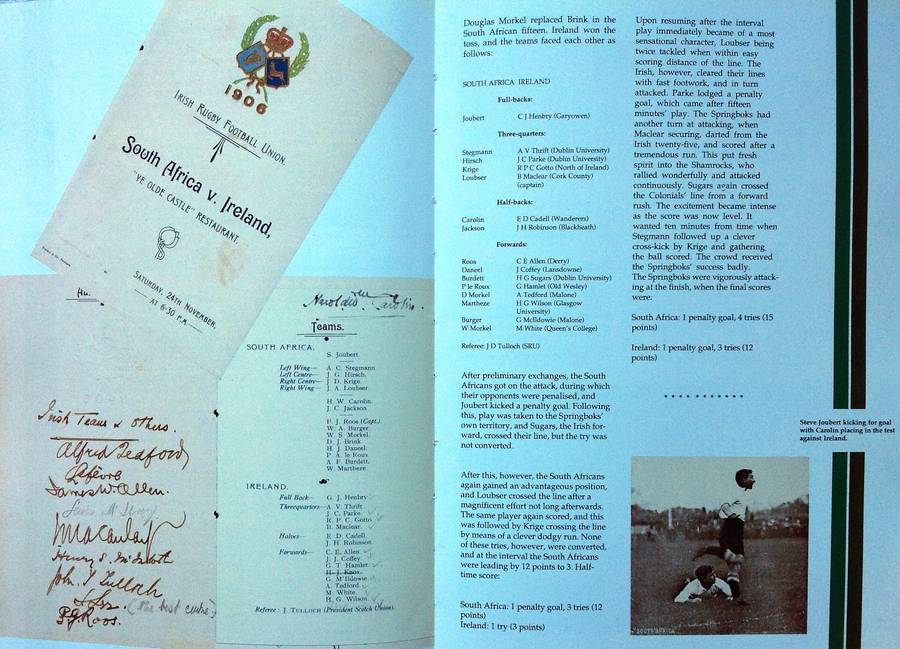 1906
IRISH RUGBY FOOTBALL UNION.
South Africa v. Ireland,
"YE OLDE CASTLE" RESTAURANT.
SATURDAY, 24TH NOVEMBER,
AT 6-30 P.M.
Irish Team & others.
Alfred Teaford
James W. Allen.
Macaulay
John Tulloch
(The best centre)
P.J. Roos.
Harold W. Carolin.
Teams.
SOUTH AFRICA.
S. Joubert.
Left Wing— A. C. Stegmann
Left Centre— J. G. Hirsch.
Right Centre— J. D. Krige.
Right Wing— J. A. Loubser.
H. W. Carolin.
J. C. Jackson
P. J. Roos (Capt.)
W. A. Burger.
W. S. Morkel.
D. J. Brink.
H. J. Daneel.
P. A. le Roux
A. F. Burdett.
W. Martheze
IRELAND.
Full Back— G. J. Henley
Threequarters— A. V. Thrift
J. C. Parke.
R. P. C. Gotto
B. Maclear.
Halves— E. D. Cadell.
J. H. Robinson.
Forwards— C. E. Allen
J. J. Coffey
G. T. Hamlet
H. J. Knox.
G. M'Ildowie.
A. Tedford.
M. White
H. G. Wilson.
Referee: J. TULLOCH (President Scotch Union).
Douglas Morkel replaced Brink in the
South African fifteen. Ireland won the
toss, and the teams faced each other as
follows:
SOUTH AFRICA IRELAND
Full-backs:
Joubert C J Henbry (Garyowen)
Three-quarters:
Stegmann A V Thrift (Dublin University)
Hirsch J C Parke (Dublin University)
Krige R P C Gotto (North of Ireland)
Loubser B Maclear (Cork County)
(captain)
Half-backs:
Carolin E D Cadell (Wanderers)
Jackson J H Robinson (Blackheath)
Forwards:
Roos C E Allen (Derry)
Daneel J Coffey (Lansdowne)
Burdett H G Sugars (Dublin University)
P le Roux G Hamlet (Old Wesley)
D Morkel A Tedford (Malone)
Martheze H G Wilson (Glasgow
University)
Burger G McIldowie (Malone)
W Morkel M White (Queen's College)
Referee: J D Tulloch (SRU)
After preliminary exchanges, the South
Africans got on the attack, during which
their opponents were penalised, and
Joubert kicked a penalty goal. Following
this, play was taken to the Springboks'
own territory, and Sugars, the Irish for-
ward, crossed their line, but the try was
not converted.
After this, however, the South Africans
again gained an advantageous position,
and Loubser crossed the line after a
magnificent effort not long afterwards.
The same player again scored, and this
was followed by Krige crossing the line
by means of a clever dodgy run. None
of these tries, however, were converted,
and at the interval the South Africans
were leading by 12 points to 3. Half-
time score:
South Africa: 1 penalty goal, 3 tries (12
points)
Ireland: 1 try (3 points)
Upon resuming after the interval
play immediately became of a most
sensational character, Loubser being
twice tackled when within easy
scoring distance of the line. The
Irish, however, cleared their lines
with fast footwork, and in turn
attacked. Parke lodged a penalty
goal, which came after fifteen
minutes' play. The Springboks had
another turn at attacking, when
Maclear securing, darted from the
Irish twenty-five, and scored after a
tremendous run. This put fresh
spirit into the Shamrocks, who
rallied wonderfully and attacked
continuously. Sugars again crossed
the Colonials' line from a forward
rush. The excitement became intense
as the score was now level. It
wanted ten minutes from time when
Stegmann followed up a clever
cross-kick by Krige and gathering
the ball scored. The crowd received
the Springboks' success badly.
The Springboks were vigorously attack-
ing at the finish, when the final scores
were:
South Africa: 1 penalty goal, 4 tries (15
points)
Ireland: 1 penalty goal, 3 tries (12
points)
Steve Joubert kicking for goal
with Carolin placing in the test
against Ireland.